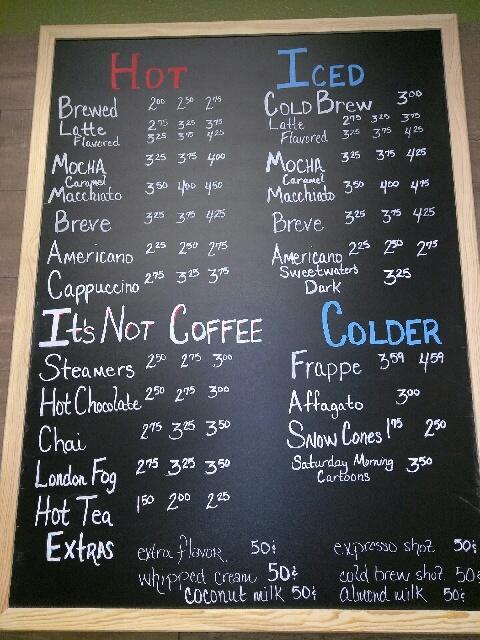 Hot
Brewed 2.00 2.50 2.75
Latte 2.75 3.25 3.75
Flavored 3.25 3.75 4.25
Mocha 3.25 3.75 4.00
Caramel
Macchiato 3.50 4.00 4.50
Breve 3.25 3.75 4.25
Americano 2.25 2.50 2.75
Cappuccino 2.75 3.25 3.75
Iced
Cold Brew 3.00
Latte 2.75 3.25 3.75
Flavored 3.25 3.75 4.25
Mocha 3.25 3.75 4.25
Caramel
Macchiato 3.50 4.00 4.75
Breve 3.25 3.75 4.25
Americano 2.25 2.50 2.75
Sweetwaters
Dark 3.25
It's Not Coffee
Steamers 2.50 2.75 3.00
Hot Chocolate 2.50 2.75 3.00
Chai 2.75 3.25 3.50
London Fog 2.75 3.25 3.50
Hot Tea 1.50 2.00 2.25
Colder
Frappe 3.59 4.59
Affagato 3.00
Snow Cones 1.75 2.50
Saturday Morning
Cartoons 3.50
Extras
extra flavor 50¢
whipped cream 50¢
coconut milk 50¢
expresso shot 50¢
cold brew shot 50¢
almond milk 50¢